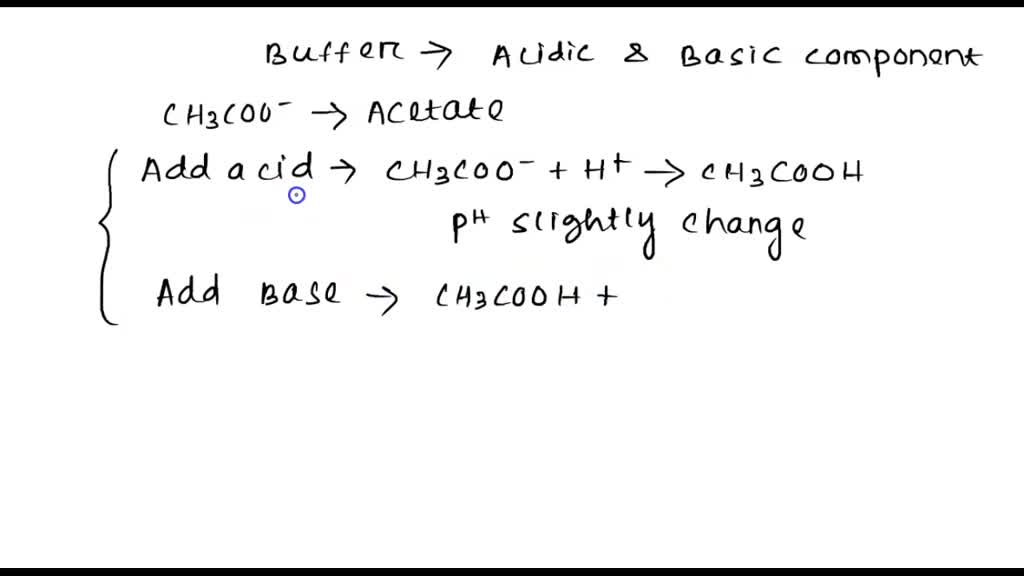 Buffer → Acidic & Basic component
CH3COO⁻ → Acetate
Add acid → CH3COO⁻ + H⁺ → CH3COOH
pH slightly change
Add Base → CH3COOH +